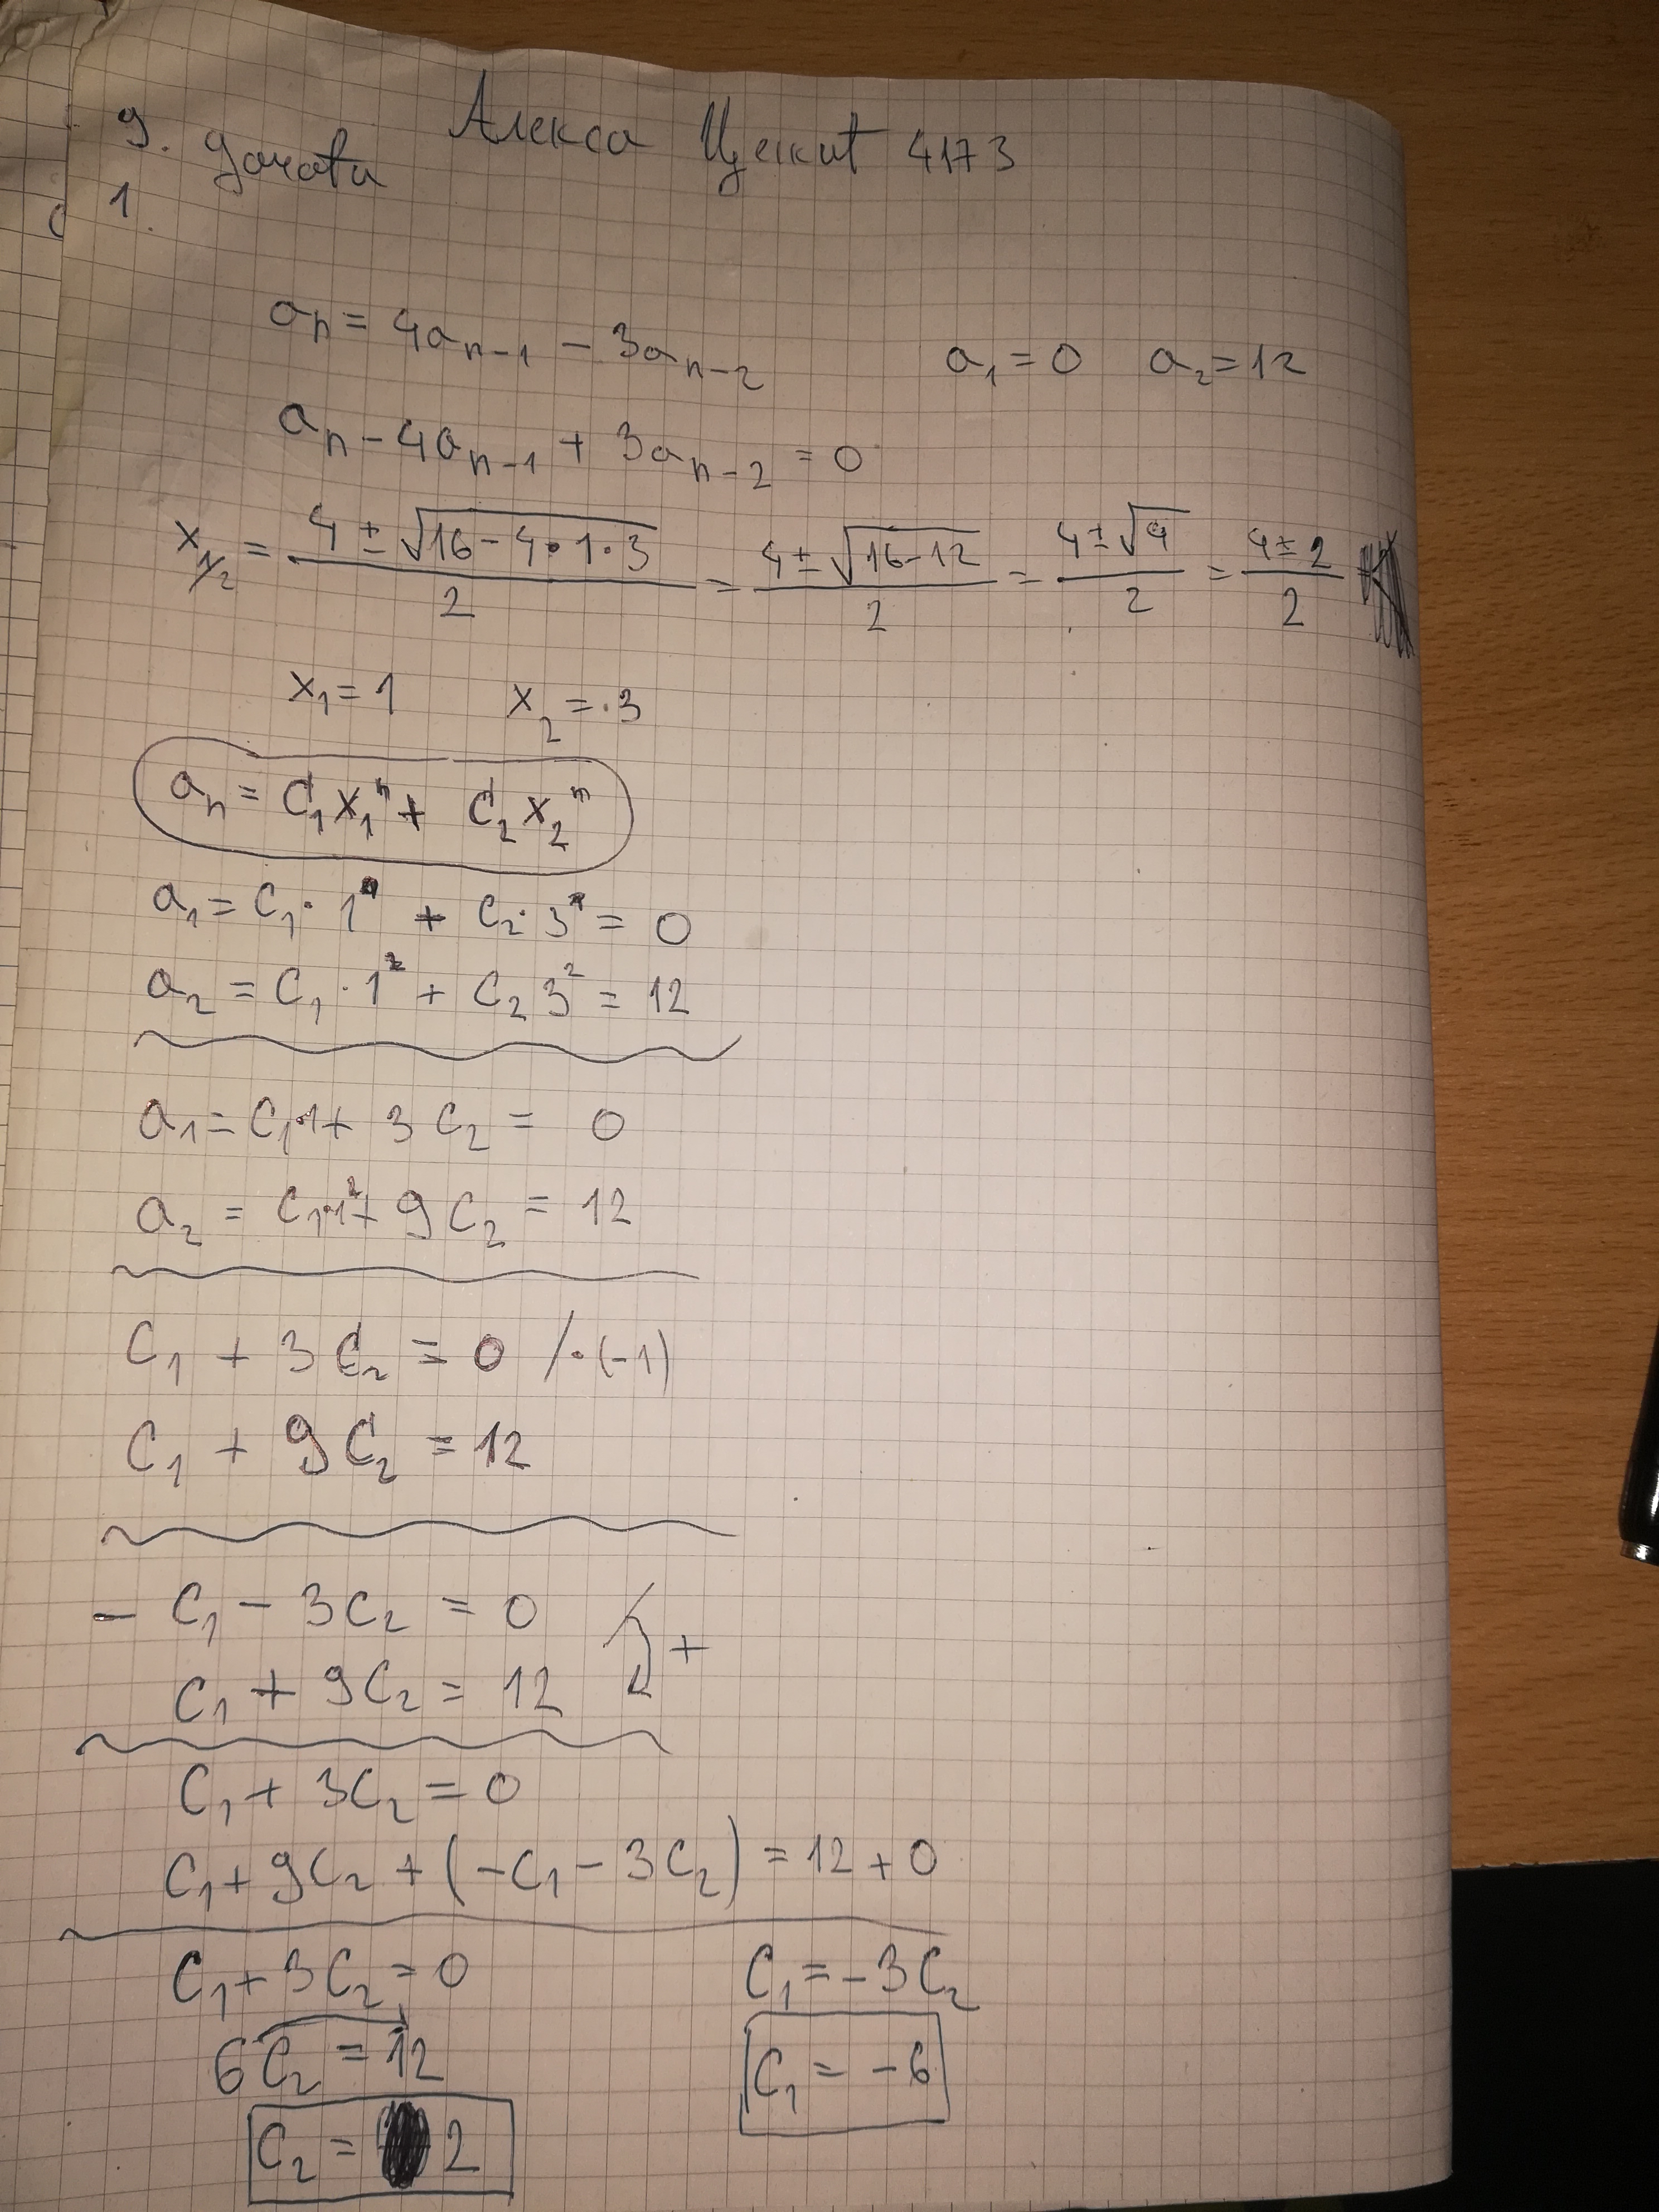 9. домаћи Алекса Цекић 4173
1.
aₙ = 4aₙ₋₁ - 3aₙ₋₂ a₁ = 0 a₂ = 12
aₙ - 4aₙ₋₁ + 3aₙ₋₂ = 0
x₁/₂ = (4 ± √(16 - 4·1·3))/2 = (4 ± √(16-12))/2 = (4 ± √4)/2 = (4 ± 2)/2
x₁ = 1 x₂ = 3
aₙ = C₁x₁ⁿ + C₂x₂ⁿ
a₁ = C₁·1¹ + C₂·3¹ = 0
a₂ = C₁·1² + C₂3² = 12
a₁ = C₁·1 + 3C₂ = 0
a₂ = C₁·1² + 9C₂ = 12
C₁ + 3C₂ = 0 /·(-1)
C₁ + 9C₂ = 12
-C₁ - 3C₂ = 0
C₁ + 9C₂ = 12 +
C₁ + 3C₂ = 0
C₁ + 9C₂ + (-C₁ - 3C₂) = 12 + 0
C₁ + 3C₂ = 0 C₁ = -3C₂
6C₂ = 12 C₁ = -6
C₂ = 2